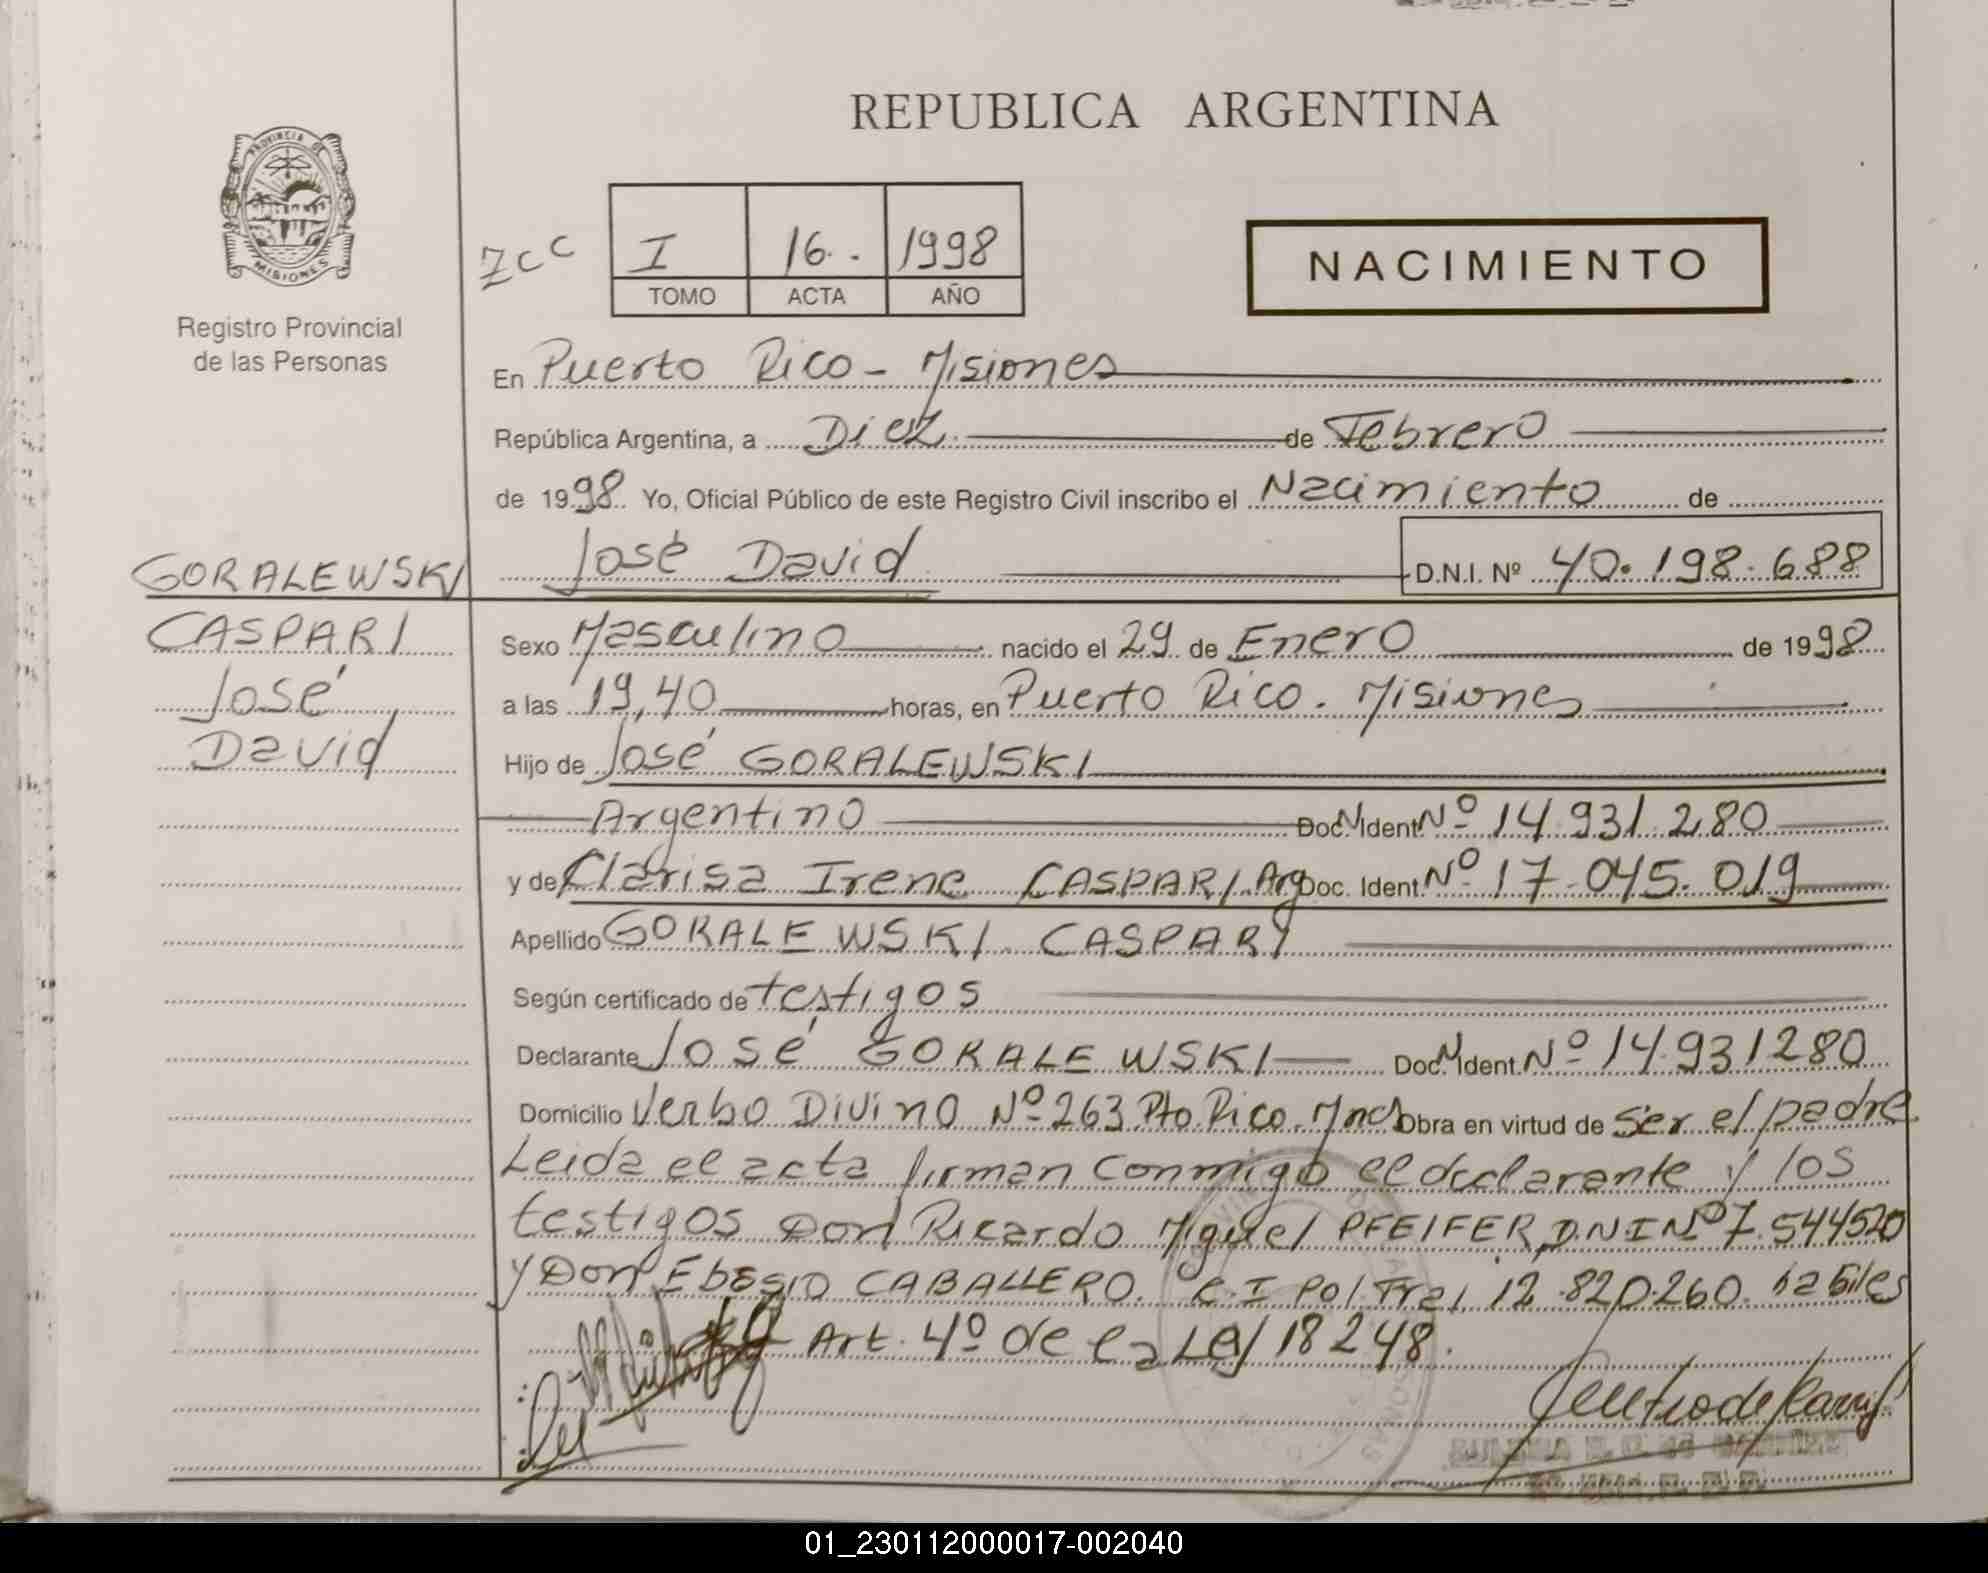 REPUBLICA ARGENTINA
PROVINCIA DE
MISIONES
Registro Provincial
de las Personas
zcc
I 16. . 1998
TOMO ACTA AÑO
NACIMIENTO
En Puerto Rico - Misiones
República Argentina, a Diez de Febrero
de 1998 Yo, Oficial Público de este Registro Civil inscribo el Nacimiento de
José David D.N.I. Nº 40.198.688
GORALEWSKI
CASPARI
José
David
Sexo Masculino nacido el 29 de Enero de 1998
a las 19,40 horas, en Puerto Rico. Misiones
Hijo de José GORALEWSKI
Argentino Doc. N Ident Nº 14.931.280
y de Clarisa Irene CASPARI Arg Doc. Ident. Nº 17.045.019
Apellido GORALEWSKI CASPARI
Según certificado de testigos
Declarante José GORALEWSKI Doc. N Ident. Nº 14.931280
Domicilio Verbo Divino Nº 263 Pto. Rico. Mnes Obra en virtud de Ser el padre
Leida el acta firman conmigo el declarante y los
testigos Don Ricardo Miguel PFEIFER, D.N.I Nº 7.544520
y Don CABALLERO. C.I Pol. 12.820.260. habiles
Art. 4º de la Ley 18248.
01_230112000017-002040